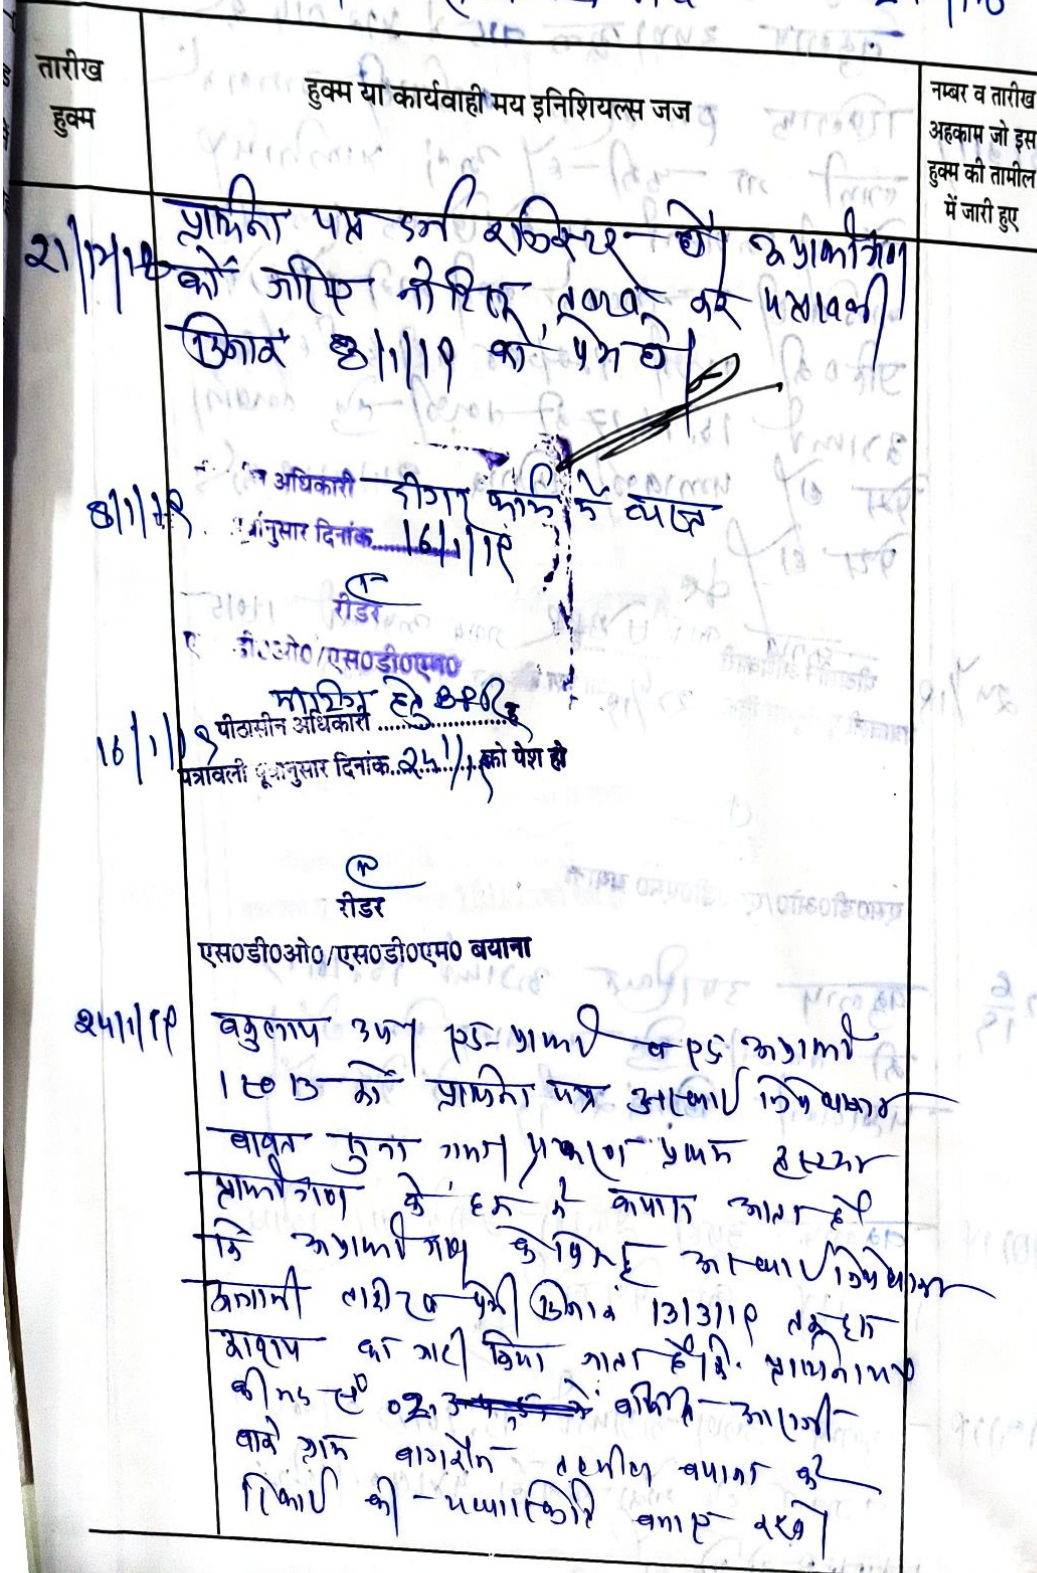 तारीख
हुक्म
हुक्म या कार्यवाही मय इनिशियल्स जज
नम्बर व तारीख
अहकाम जो इस
हुक्म की तामील
में जारी हुए
21/12/18
प्रार्थना पत्र दर्ज रजिस्टर हो। अप्रार्थीगण
को जरिए नोटिस तलब कर पत्रावली
दिनांक 8/1/19 को पेश हो।
8/1/19
अधिकारी
नुसार दिनांक 16/1/19
रीडर
डी0ओ0/एस0डी0एम0
16/1/19
पीठासीन अधिकारी
पत्रावली पूर्वानुसार दिनांक 24/1/19 को पेश हो
रीडर
एस0डी0ओ0/एस0डी0एम0 बयाना
24/1/19
वकुलाय उप। एड. प्रार्थी व एड. अप्रार्थी
1 व 3 को प्रार्थना पत्र अस्थाई निषेधाज्ञा
बाबत सुना गया। प्रकरण प्रथम दृष्टया
प्रार्थीगण के हक में पाया जाता है
कि अप्रार्थीगण के विरूद्ध अस्थाई निषेधाज्ञा
आगामी तारीख पेशी दिनांक 13/3/19 तक इस
आशय का जारी किया जाता है कि प्रार्थनापत्र
की मद सं0 02 में वर्णित आराजी
वाके ग्राम बागरैन तहसील बयाना के
रिकार्ड की यथास्थिति बनाए रखे।